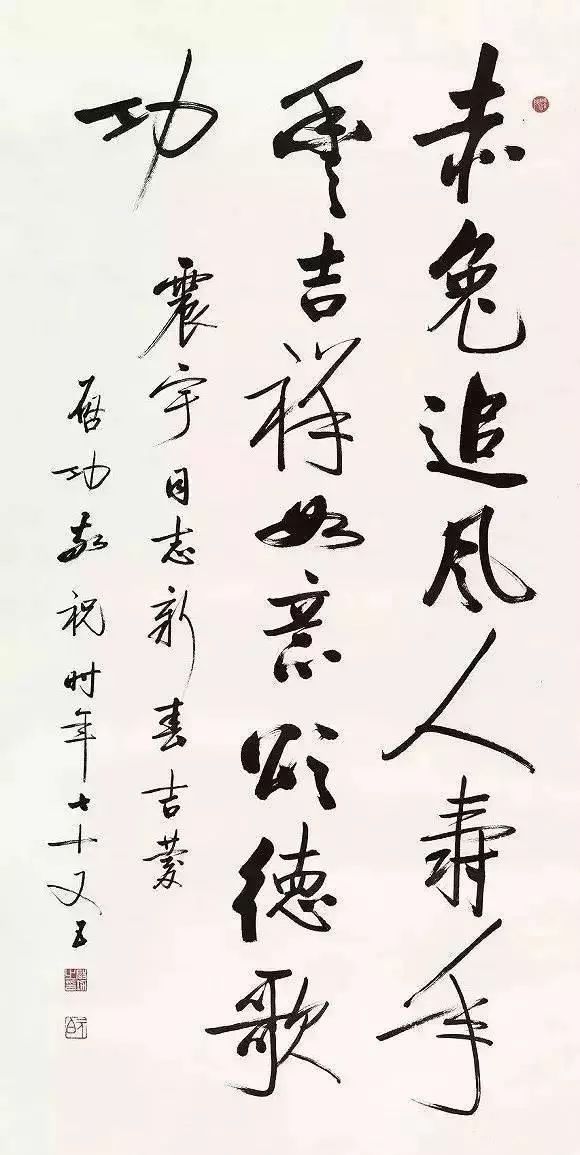 赤兔追风人寿年
丰吉祥如意颂德歌
功
震宇同志新春吉慶
启功敬祝时年七十又五